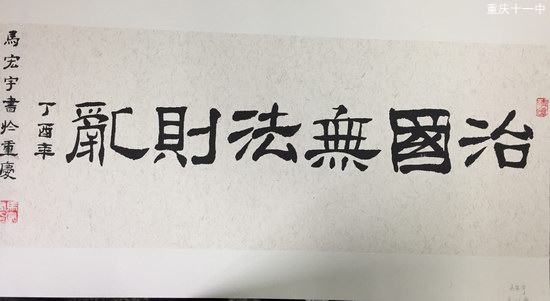 重庆十一中
治國無法則亂
丁酉年
馬宏宇書於重慶